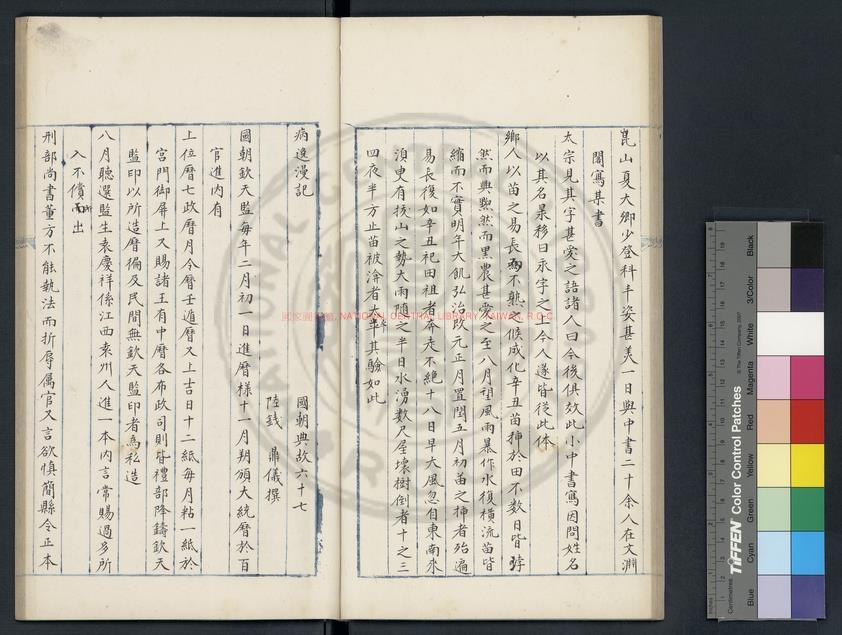 崑山夏大卿少登科丰姿甚美一日與中書二十余人在文淵
閣寫某書
太宗見其字甚愛之語諸人曰今後俱效此小中書寫因問姓名
以其名杲移日永字之上今人遂皆從此体
鄉人以苗之易長而不熟候成化辛丑苗揷於田不数日皆孛
然而興黝然而黑農甚愛之至八月望風雨暴作水復橫流苗皆
縮而不實明年大飢弘治改元正月置閏五月初苗之揷者殆遍
易長復如辛丑祀田祖者奔走不絶十八日早大風忽自東南來
湏臾有拔山之勢大雨隨之半日水湧数尺屋壞樹倒者十之三
四夜半方止苗被渰者太半其驗如此
病逸漫記
國朝典故六十七
陸釴 鼎儀撰
國朝欽天監每年二月初一日進曆樣十一月朔頒大統曆於百
官進内有
上位曆七政曆月令曆壬遁曆又上吉日十二紙每月粘一紙於
宮門御屏上又賜諸王有中曆各布政司則皆禮部降鑄欽天
監印以所造曆徧及民間無欽天監印者為私造
八月聽選監生袁慶祥係江西袁州人進一本内言常賜過多所
入不償所出
刑部尚書董方不能執法而折辱属官又言欲慎簡縣令正本
國家圖書館, NATIONAL CENTRAL LIBRARY, TAIWAN, R.O.C
TIFFEN Color Control Patches
© The Tiffen Company, 2007
Inches
Centimetres
Blue
Cyan
Green
Yellow
Red
Magenta
White
3/Color
Black